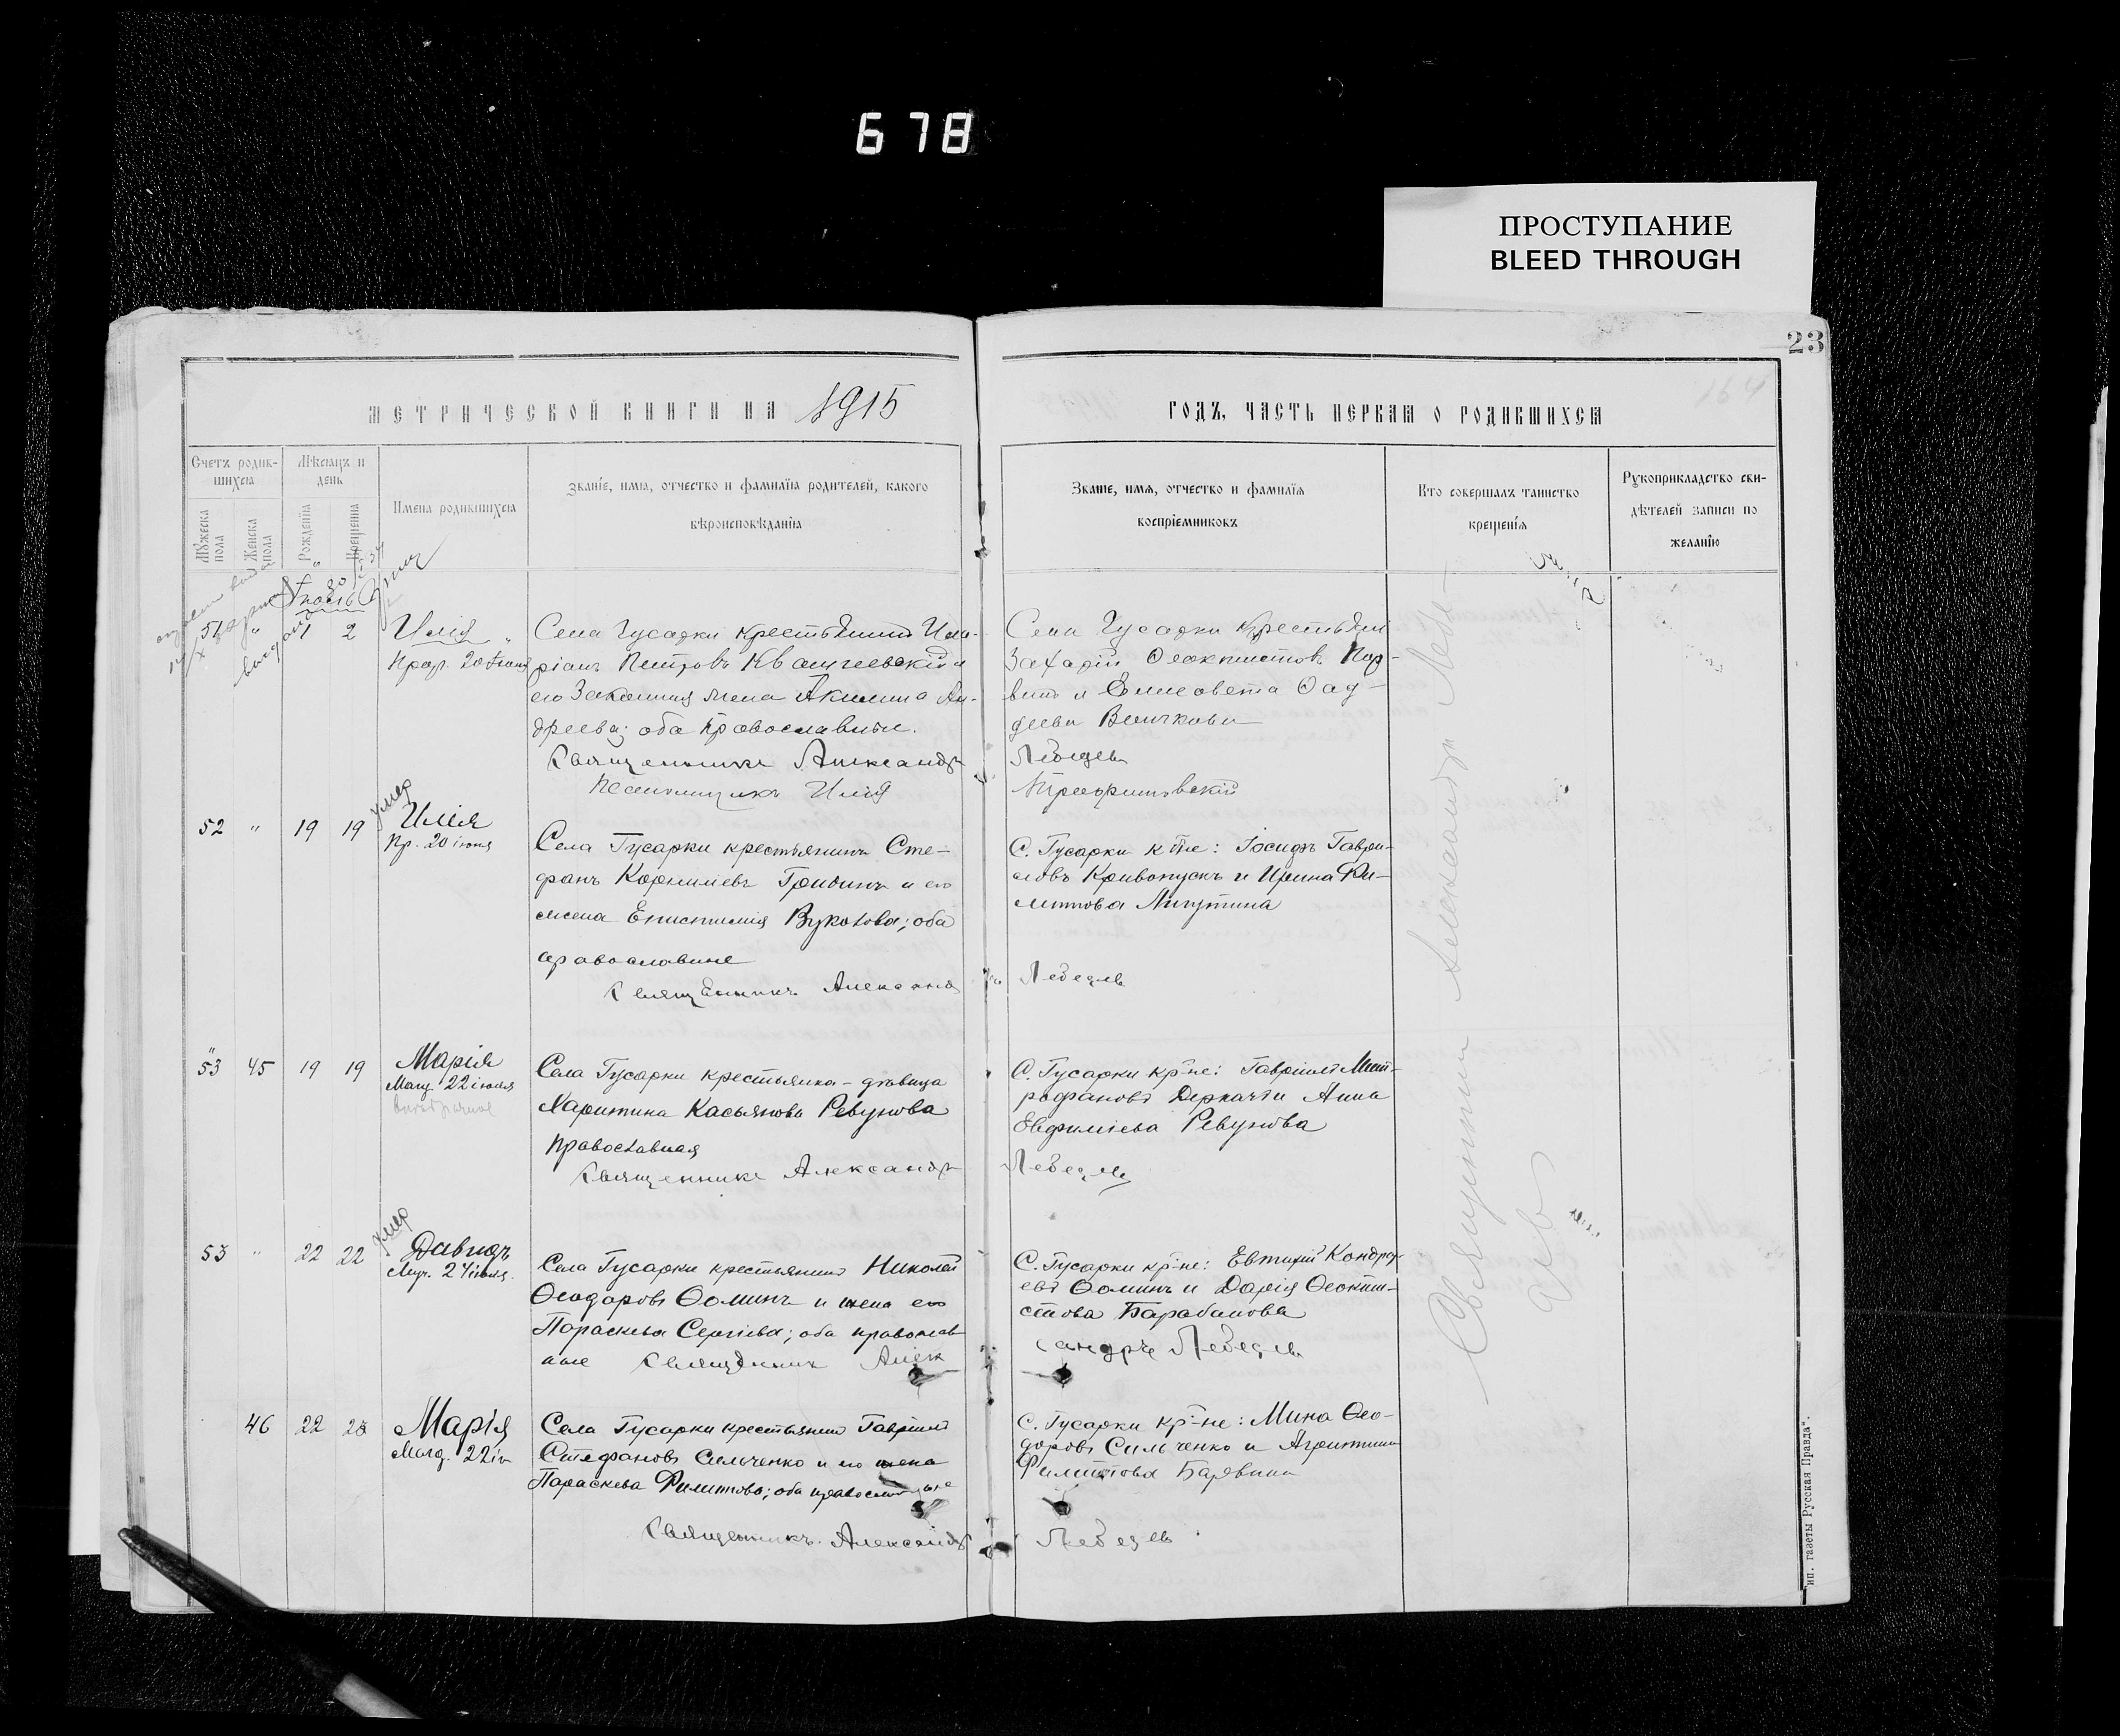 678
ПРОСТУПАНИЕ
BLEED THROUGH
23
164
МЕТРИЧЕСКОЙ КНИГИ НА 1915
ГОДЪ, ЧАСТЬ ПЕРВАЯ О РОДИВШИХСЯ
Счетъ родив-
шихся
Мужеска
пола
Женска
пола
Мѣсяцъ и
день
Рожденія
Крещенія
Имена родившихся
Званіе, имя, отчество и фамилія родителей, какого
вѣроисповѣданія
Званіе, имя, отчество и фамилія
воспріемниковъ
Кто совершалъ таинство
крещенія
Рукоприкладство сви-
дѣтелей записи по
желанію
51 " 1 2 Илія
Прор. 20
Села Гусарки крестьянинъ Ила-
ріанъ Петровъ и
его законная жена Акилина Ан-
дреева; оба православные.
Священникъ Александръ
Псаломщикъ Илія
Села Гусарки крестьян
Захарій Ѳеоктистовъ
и Елисавета Ѳад-
деева
Лебедевъ
52 " 19 19 умер
Илія
Пр. 20 іюля
Села Гусарки крестьянинъ Сте-
фанъ Корниліевъ и его
жена Епистимія Вуколова; оба
православные
Священникъ Александ
С. Гусарки кр-не: Іосифъ Гаври-
ловъ Кривопускъ и Ирина Фи-
липпова
ръ Лебедевъ
53 45 19 19 Марія
Магд. 22 іюля
Внебрачная
Села Гусарки крестьянка-дѣвица
Харитина Касьянова Ревунова
православная
Священникъ Александръ
С. Гусарки кр-не: Гавріилъ Мит-
рофановъ Деркачъ и Анна
Евфиміева Ревунова
Лебедевъ
53 " 22 22 умер
Давидъ
Муч. 24 іюля.
Села Гусарки крестьянинъ Николай
Ѳеодоровъ Ѳоминъ и жена его
Параскева Сергіева; оба православ
ные Священникъ Алек
С. Гусарки кр-не: Евтихій Кондрат
евъ Ѳоминъ и Дарія Ѳеокти-
стова Барабанова
сандръ Лебедевъ
46 22 23 Марія
Магд. 22 ію
Села Гусарки крестьянинъ Гавріилъ
Стефановъ Сильченко и его жена
Параскева Филиппова; оба православные
Священникъ Александръ
С. Гусарки кр-не: Мина Ѳео-
доровъ Сильченко и Агриппина
Филиппова
Лебедевъ
Священникъ Александръ Лебе-
девъ
ип. газеты Русская Правда".